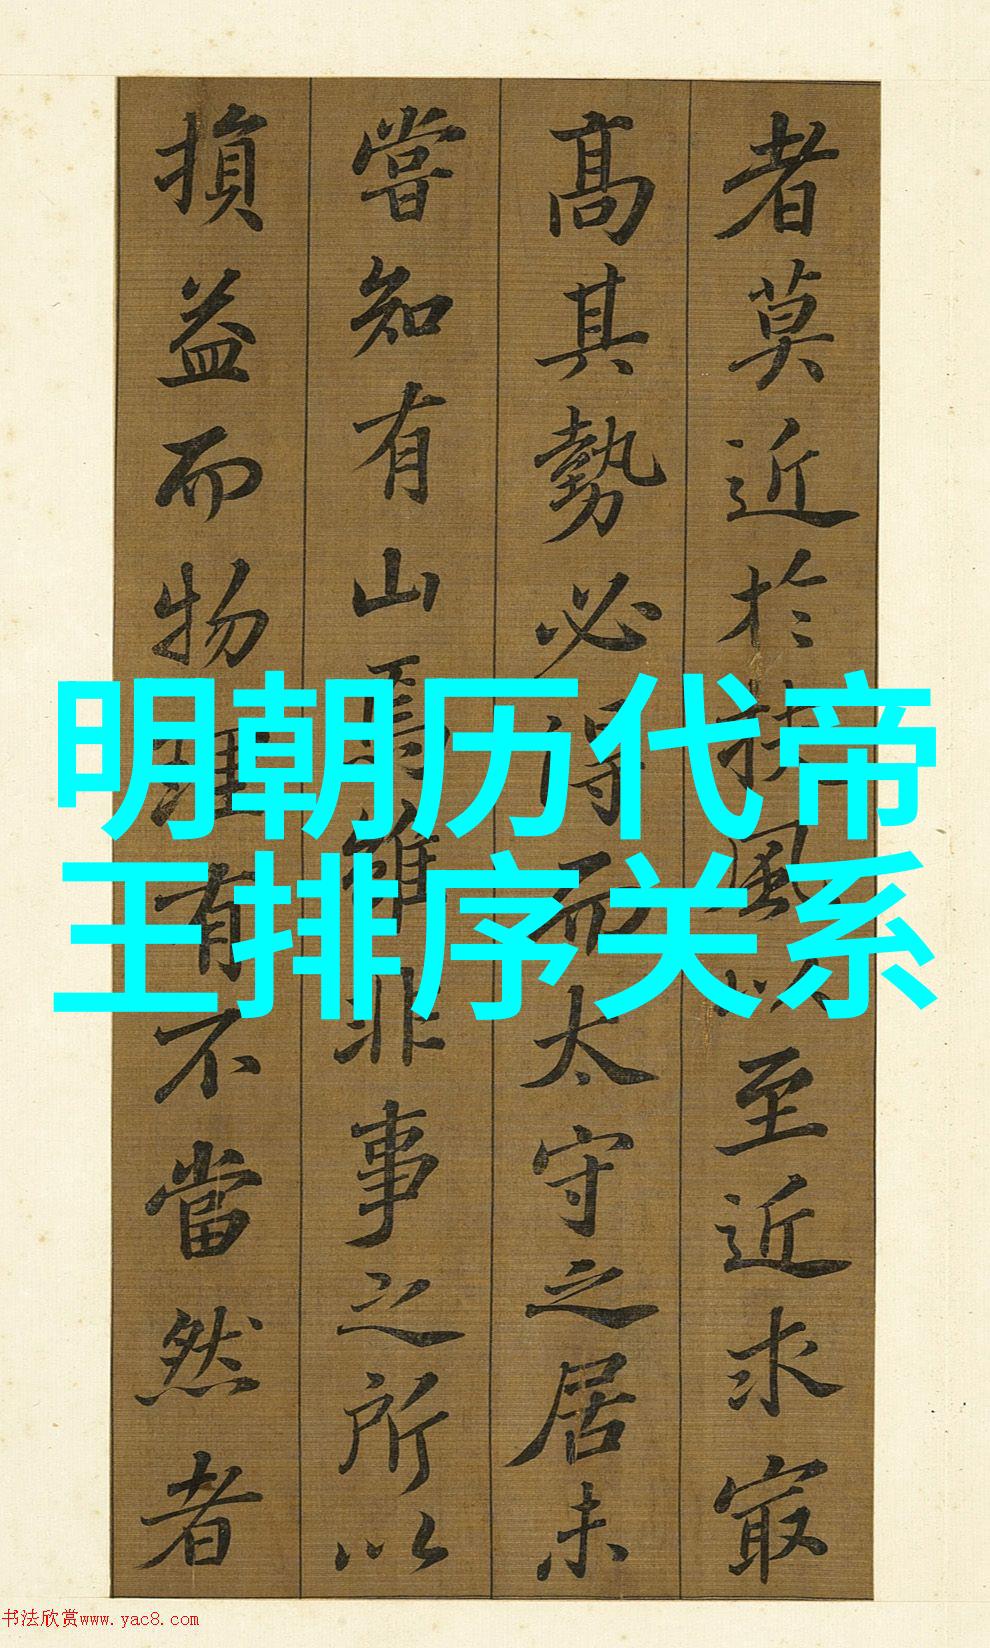 者莫近於扶風以至近求㝡
髙其勢必得而太守之居未
嘗知有山焉雖非事之所以
損益而物理有不當然者
明朝历代帝
王排序关系
书法欣赏www.yac8.com